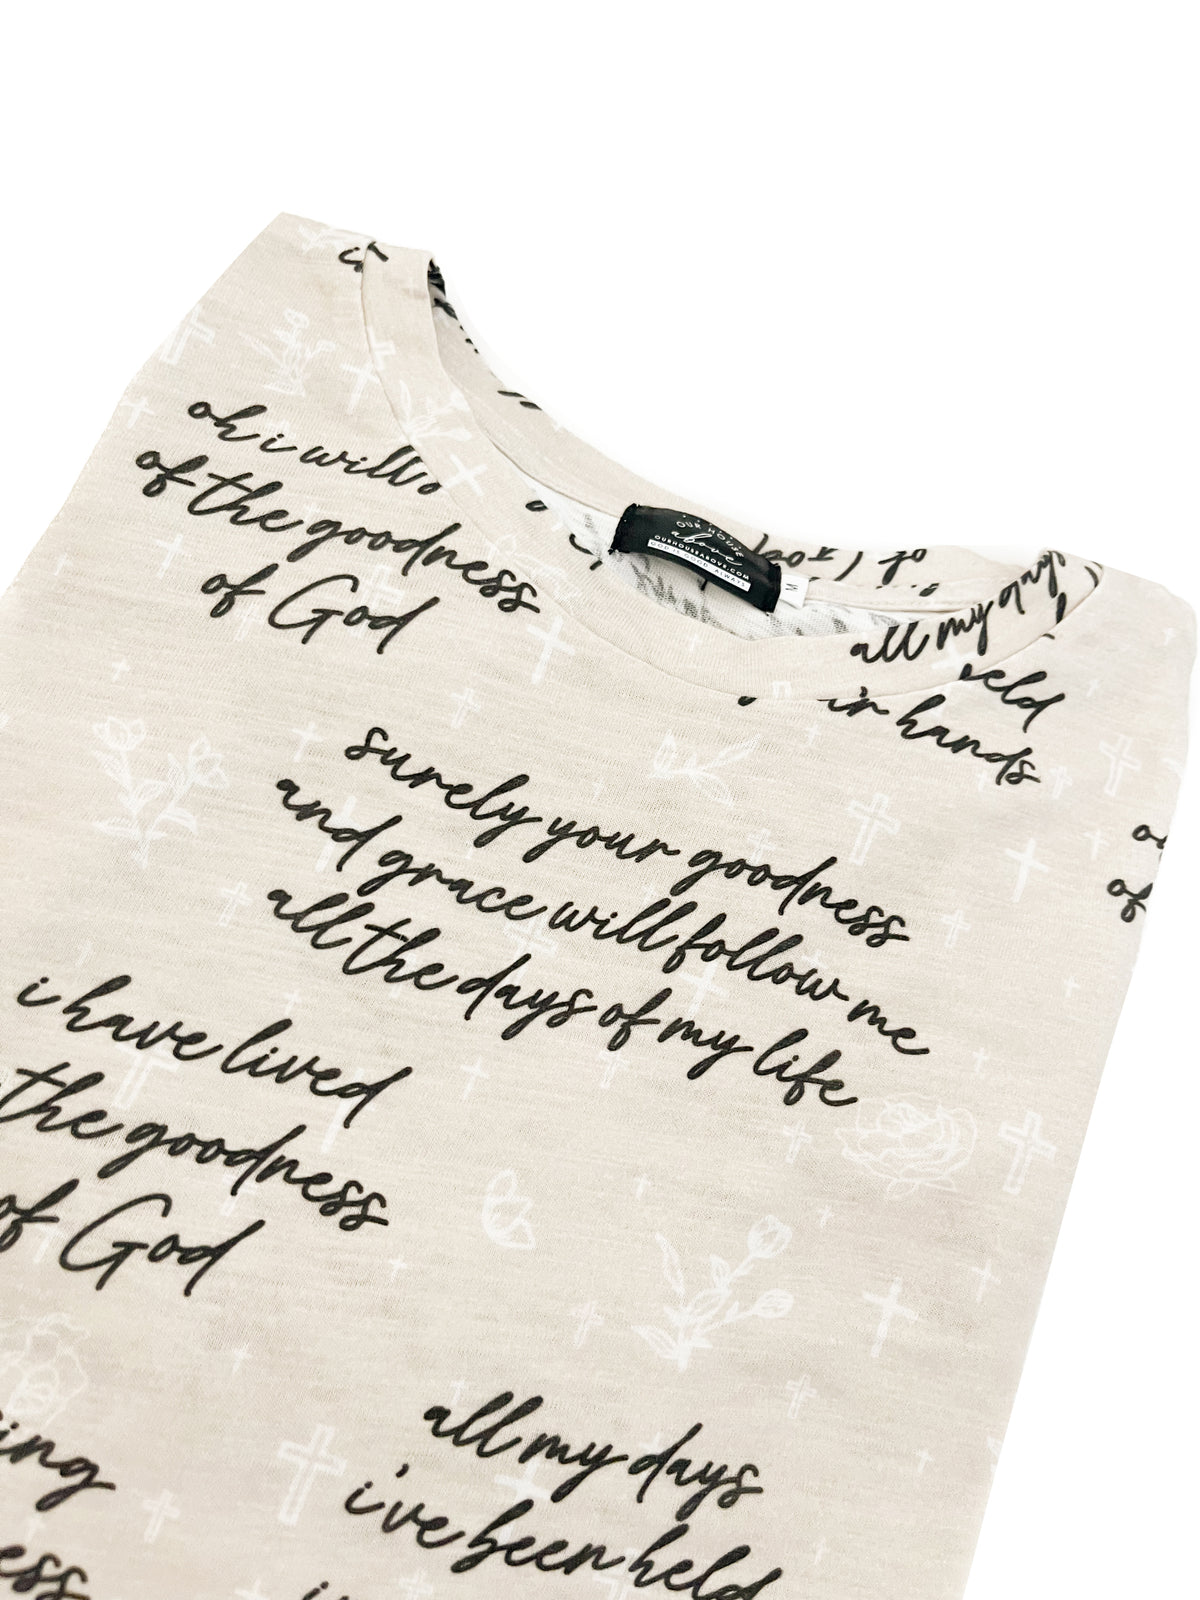 oh i will
of the goodness
of God
OUR HOUSE
above
OURHOUSEABOVE.COM
GOD IS GOOD. ALWAYS
M
of
all my days
held
hands
surely your goodness
and grace will follow me
all the days of my life
of
i have lived
the goodness
of God
all my days
i've been held